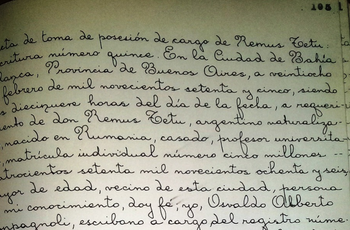 105
eta de toma de posesión de cargo de Remus Tetu.
critura número quince. En la Ciudad de Bahía
lanca, Provincia de Buenos Aires, a veintiocho
febrero de mil novecientos setenta y cinco, siendo
s diecisiete horas del día de la fecha, a requeri
ento de don Remus Tetu, argentino naturaliza
, nacido en Rumania, casado, profesor universita
, matrícula individual número cinco millones --
trocientos setenta mil novecientos ochenta y seis,
yor de edad, vecino de esta ciudad, persona
mi conocimiento, doy fé; yo, Osvaldo Alberto
mpagnoli, escribano a cargo del registro núme-